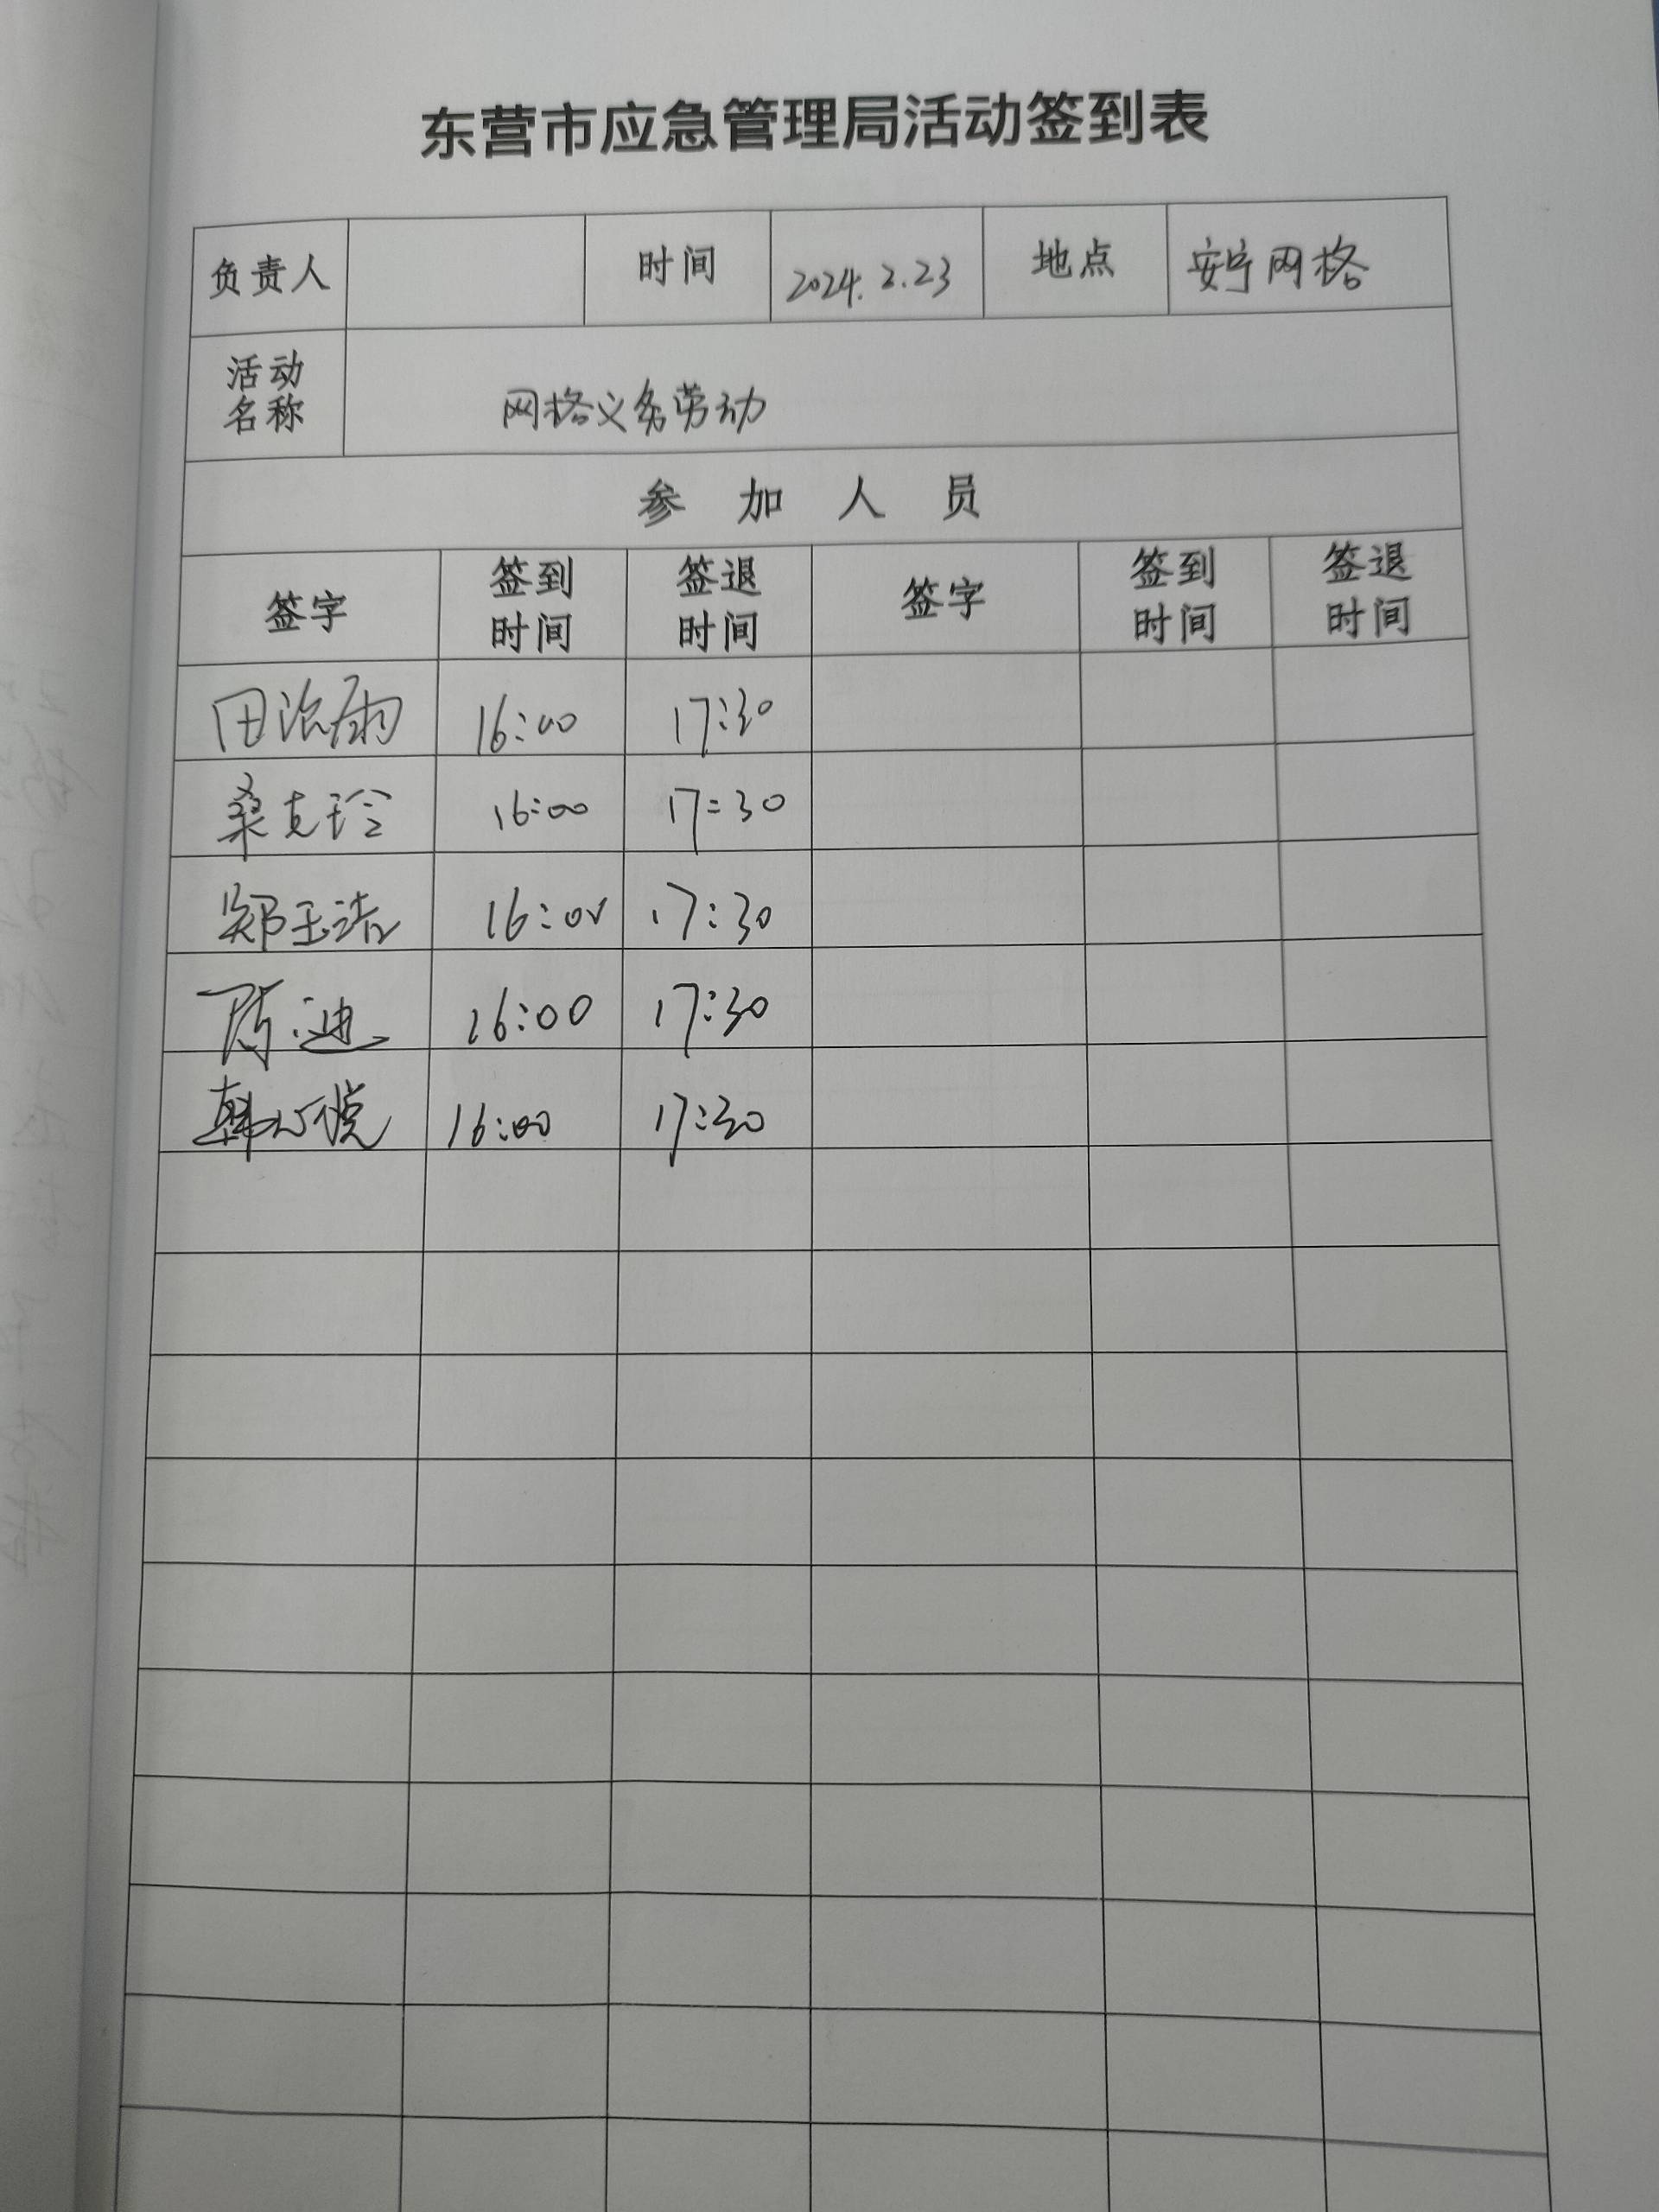 东营市应急管理局活动签到表
负责人 时间 2024.2.23 地点 安宁网格
活动名称 网格义务劳动
参加人员
签字 签到时间 签退时间 签字 签到时间 签退时间
田 雨 16:00 17:30
桑克玲 16:00 17:30
郑玉洁 16:00 17:30
陈迪 16:00 17:30
韩心悦 16:00 17:30